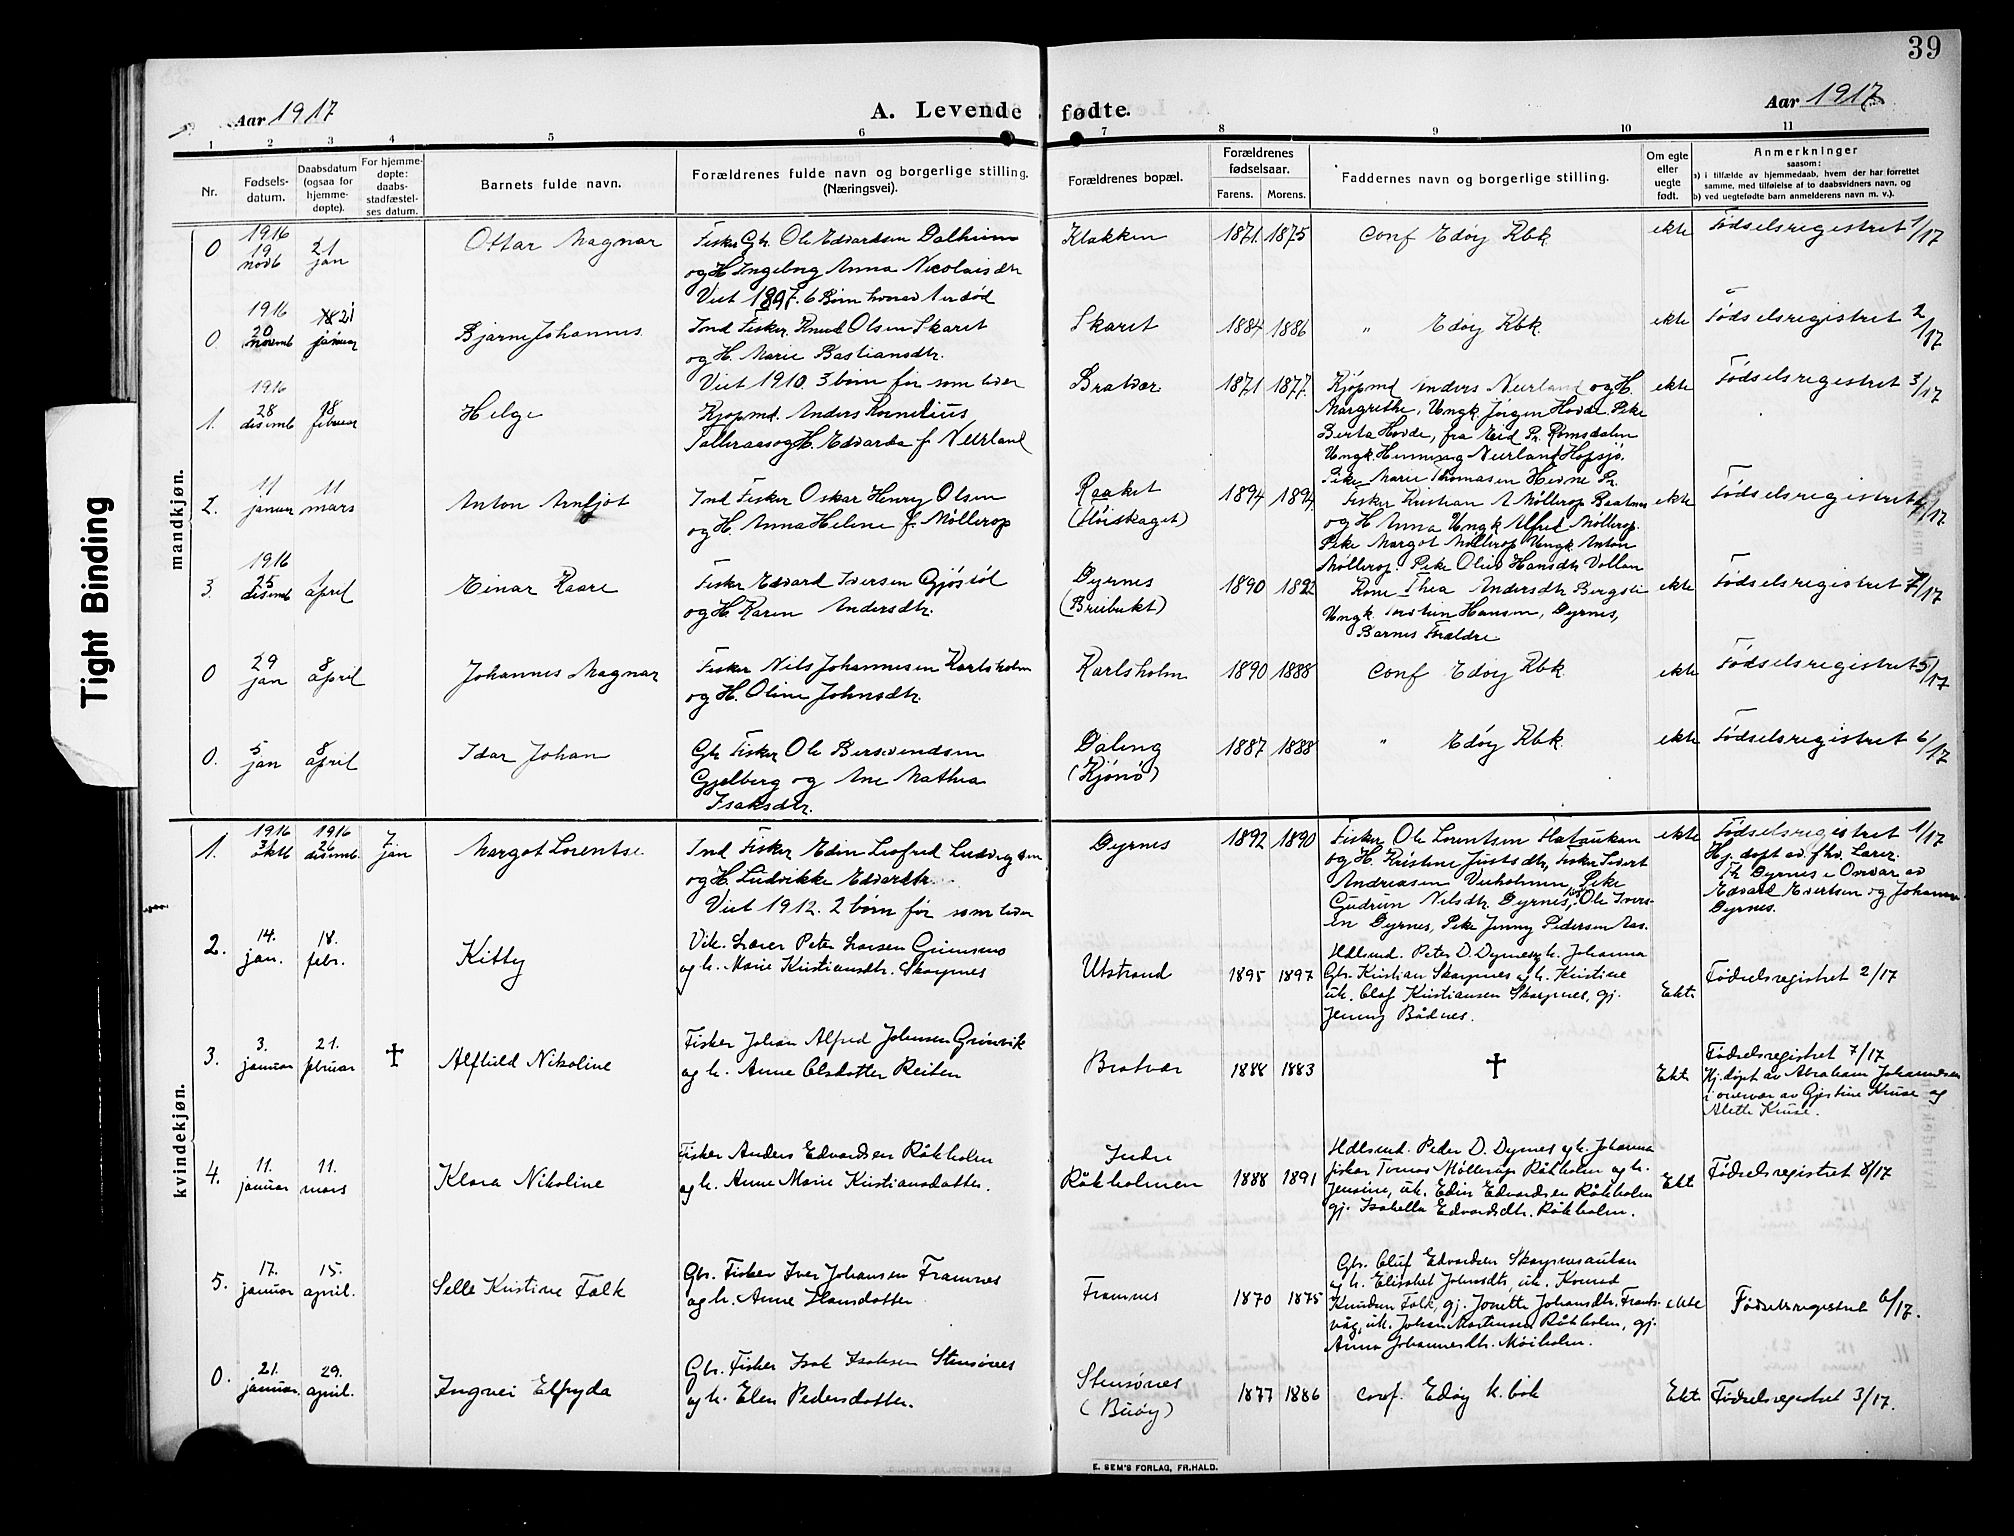 39
Aar 1917
A. Levende fødte.
Aar 1917
1 2 3 4 5 6 7 7 8 9 10 11
Nr.
Fødsels-
datum.
Daabsdatum
(ogsaa for
hjemme-
døpte).
For hjemme-
døpte:
daabs-
stadfæstel-
ses datum.
Barnets fulde navn.
Forældrenes fulde navn og borgerlige stilling.
(Næringsvei).
Forældrenes bopæl.
Forældrenes
fødselsaar.
Farens. Morens.
Faddernes navn og borgerlige stilling.
Om egte
eller
uegte
født.
Anmerkninger
saasom:
a) i tilfælde av hjemmedaab, hvem der har forrettet
samme, med tilføielse af to daabsvidners navn, og
b) ved uegtefødte barn anmelderens navn m. v.).
mandkjøn.
0
1916
19
novb
21
jan
Ottar Magnar
Fisker Gbr. Ole Edvardsen Dalheim
og H. Ingeborg Anna Nicolaisdtr
Viet 1897. 6 Børn hvorav 1 er død
Klakken
1871. 1875
Conf Edøy Kbk
ekte
Fødselsregistret 1/17
0.
1916
20
novemb
21
januar
Bjarne Johannes.
Ind Fisker. Knud Olsen Skaret
og H. Marie Bastiansdtr.
Viet 1910. 3 børn før som lever
Skaret
1884 1886
" Edøy Kbk.
ekte
Fødselsregistret 2/17
1.
1916
28
desemb
18
februar
Helge
Kjøpmd. Anders Kornelius
Talleraas og H. Edvarda f. Neerland
Bratvær
1871 1877.
Kjøpmd Anders Neerland og H.
Margrethe, Ungk. Jørgen Hovde, Pike
Berta Hovde, fra Eid Pr. Romsdalen
Ungk. Henning Neerland Hopsjø.
Pike Marie Thomasen Hevne Pr.
ekte
Fødselsregistret 3/17
2.
11
januar
11
mars
Anton Arnljot
Ind Fisker Oskar Henry Olsen
og H. Anna Heline f. Møllerop
Raaket
(Høiskaget)
1894 1894
Fisker Kristian A Møllerop
og H Anna Ungk Alfred Møllerop.
Pike Margot Møllerop Ungk Anton
Møllerop. Pike Oliv Hansdtr Vollen
ekte
Fødselsregistret 4/17
3.
1916
25
desemb
1
april
Einar Kaare
Fisker Edvard Iversen Gjøstøl
og H. Karen Andersdtr.
Dyrnes
(Breibukt)
1890 1892
Kone Thea Andersdtr Bergsli
Ungk. Hansen, Dyrnes,
Barnes Foraldre
ekte
Fødselsregistret 7/17
0
29
jan
8
april
Johannes Magnar
Fisker Nils Johannesen Karlsholm
og H. Oline Johnsdtr.
Karlsholm
1890 1888
Conf Edøy Kbk.
ekte
Fødselsregistret 5/17
0.
5
jan
8
april
Idar Johan
Gbr Fisker Ole Bersvendsen
Gjelberg og Ane Mathea
Isaksdtr.
Daleng
(Kjønø)
1887 1888
" Edøy Kbk.
ekte
Fødselsregistret 6/17
kvindekjøn.
1.
1916
3
oktb
1916
26
desemb.
7
jan
Margot Lorentse
Ind Fisker Edin Leofred Ludvigsen
og H. Ludvikke Edvardtr.
Viet 1912. 2 børn før som lever
Dyrnes
1892 1890
Fisker Ole Lorentsen
og H. Kristine Justsdtr, Fisker Sivert
Andreasen Veiholmen, Pike
Gudrun Nilsdtr. Dyrnes, Ole Ivers-
en Dyrnes, Pike Jenny Pedersen Aas.
ekte
Fødselsregistret 1/17
Hj. døpt av fhv. Lærer
Dyrnes i Onvær av
Edvard Evertsen og Johanna
Dyrnes.
2.
14.
jan.
18.
febr.
Kitty
Vik. Lærer Peter Larsen Grimsmo
og h. Marie Kristiansdtr. Skarpnes
Utstrand
1895 1897
Hdlsmd. Peter D. Dyrnes og h. Johanna
Gbr. Kristian Skarpnes og h. Kristine
uk. Olaf Kristiansen Skarpnes, gj.
Jenny Bådnes.
Ekte
Fødselsregistret 2/17
3.
3.
januar
21.
februar
✝
Alfhild Nikoline
Fisker Johan Alfred Johansen Grinvik
og h. Anne Olsdatter Reiten
Bratvær
1888 1883
✝
Ekte
Fødselsregistret 7/17
Hj. døpt av Abraham Johannesen
i overvær av Gjestine Kruse og
Alette Kruse.
4.
11.
januar
11.
mars
Klara Nikoline
Fisker Anders Edvardsen Råkholm
og h. Anne Marie Kristiansdatter.
Indre
Råkholmen
1888 1891
Hdlsmd. Peder D. Dyrnes og h. Johanna
fisker Tomas Møllerup Råkholm og h.
Jensine, uk. Edin Edvardsen Råkholm
gj. Isabella Edvardsdtr. Råkholm.
Ekte
Fødselsregistret 8/17
5.
17.
januar
15.
april.
Selle Kristine Falk
Gbr. Fisker Iver Johansen Framnes
og h. Anne Hansdatter
Framnes
1870 1875
Gbr. Oluf Edvardsen Skarpnesautan
og h. Elisabet Johnsdtr, uk. Konrad
Knudsen Falk, gj. Jonette Johansdtr. Frants-
våg, uk. Johan Martinsen Råkholm, gj.
Anna Johannesdtr. Moiholm.
ekte
Fødselsregistret 6/17.
0.
21.
januar.
29.
april.
Ingvei Elfryda
Gbr. Fisker Isak Isaksen Stensønes
og h. Elen Pedersdatter.
Stensønes
(Buøy)
1877 1886
conf. Edøy k. bok
Ekte
Fødselsregistret 3/17.
E. SEM'S FORLAG, FR.HALD.
Tight Binding